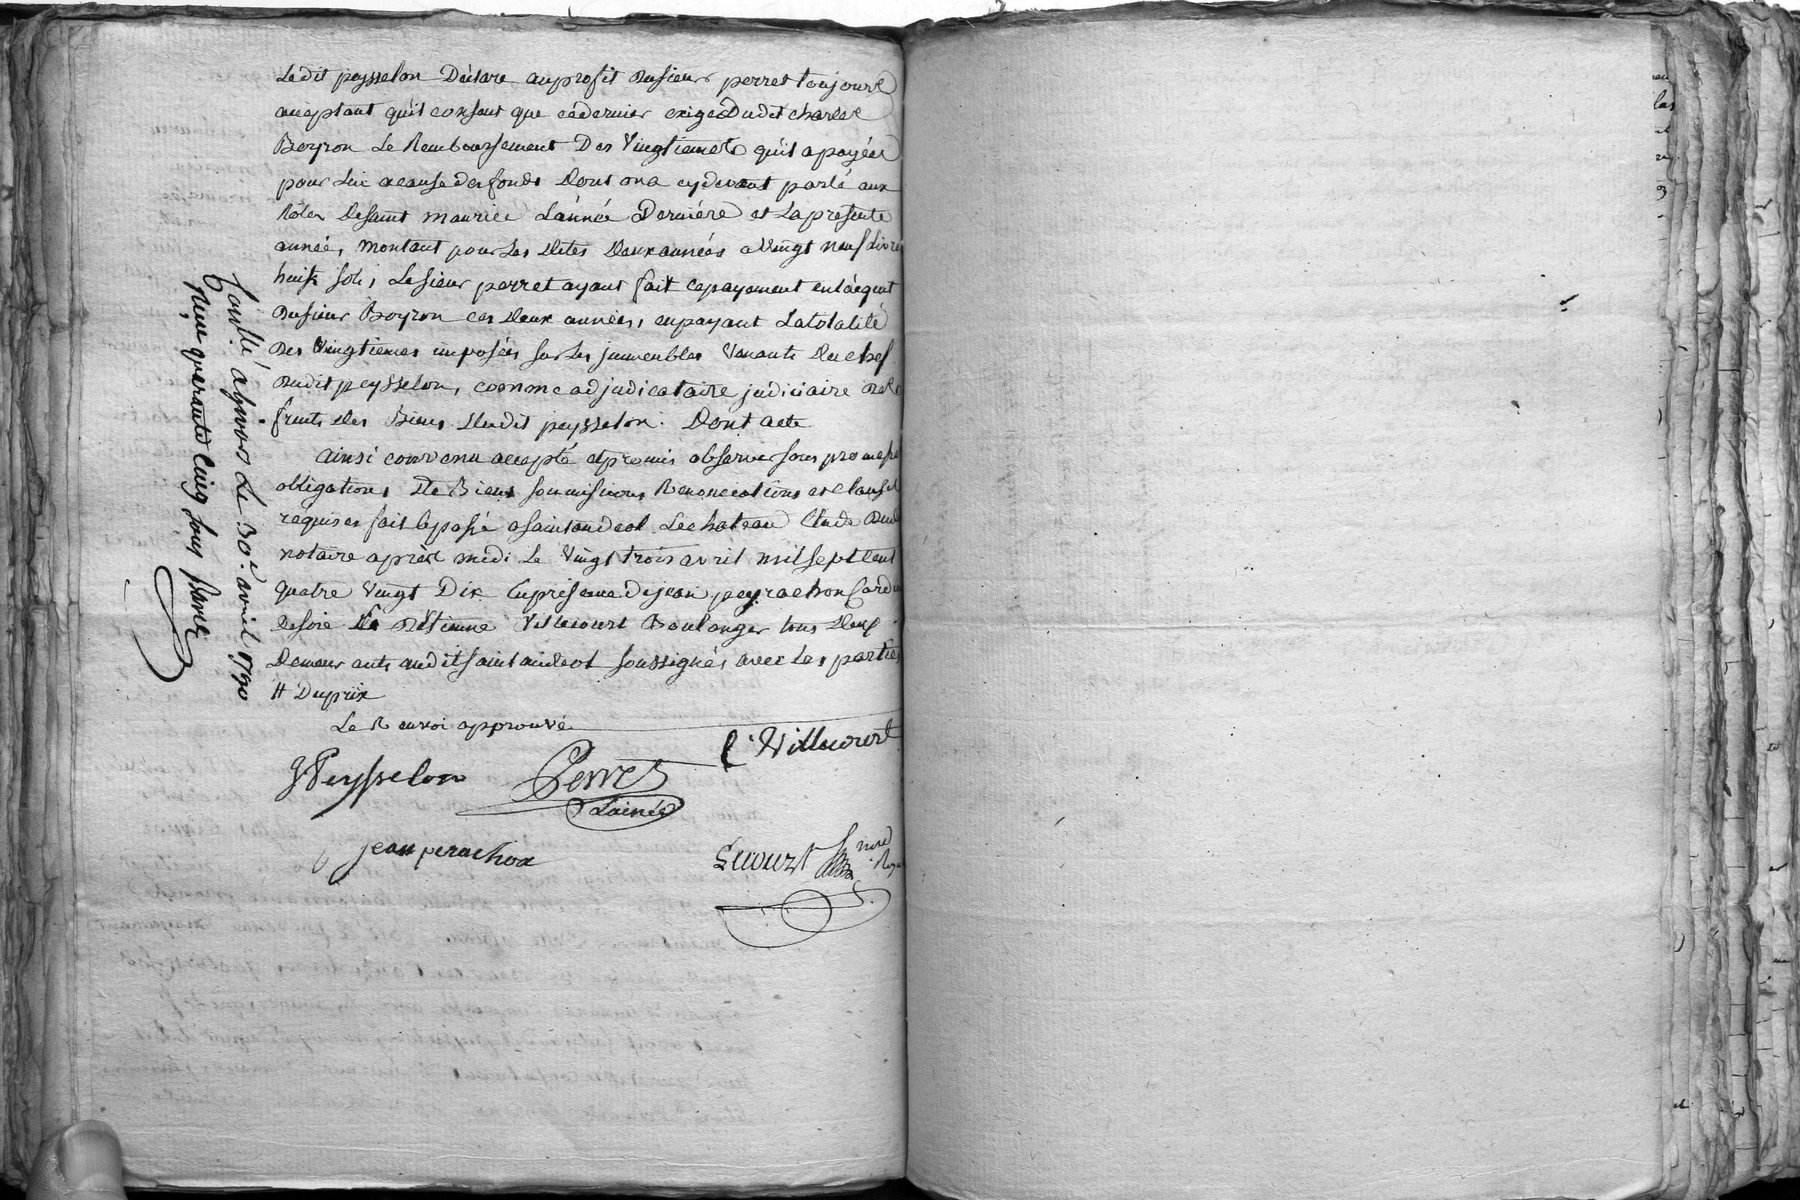 Ledit peysselon Déclare auprofit dusieur perret toujours
acceptant qu'il consent que cédernier exige Dudit charles
Boyron Le Remboursement Des Vingtiemes qu'il a payées
pour Lui acause des fonds dont on a cydevant parlé aux
Roles de saint maurice L'année Derniére et La présente
année, montant pour Les dites deux années a Vingt neuf Livres
huit sols, Le sieur perret ayant fait cepayement en l'acquit
dusieur Boyron ces deux années, en payant La totalité
des Vingtiemes imposées sur Les immeubles Venants du chef
dudit peysselon, comme adjudicataire judiciaire des
fruits des Biens dudit peysselon. Dont acte
ainsi convenu accepté et promis observer sous promesses
obligations De Biens soumissions Renonciations et clauses
requises fait et passé a saint andeol Le chateau Etude Dudit
notaire aprés midi Le Vingt trois avril mil sept Cent
quatre Vingt Dix En présence de jean peyrachon Carde
de soie Et d'Etienne Villecourt Boulanger tous deux
Demeurants audit saint andeol soussignés avec Les parties
# Du prix
Le Renvoi approuvé
E. Villecourt
J Peysselon
Perret
Lainé
jean perachon
Lecourt
not.
Roy.
Conllé a givors Le 30.e avril 1790
Reçu quarante Cinq sous